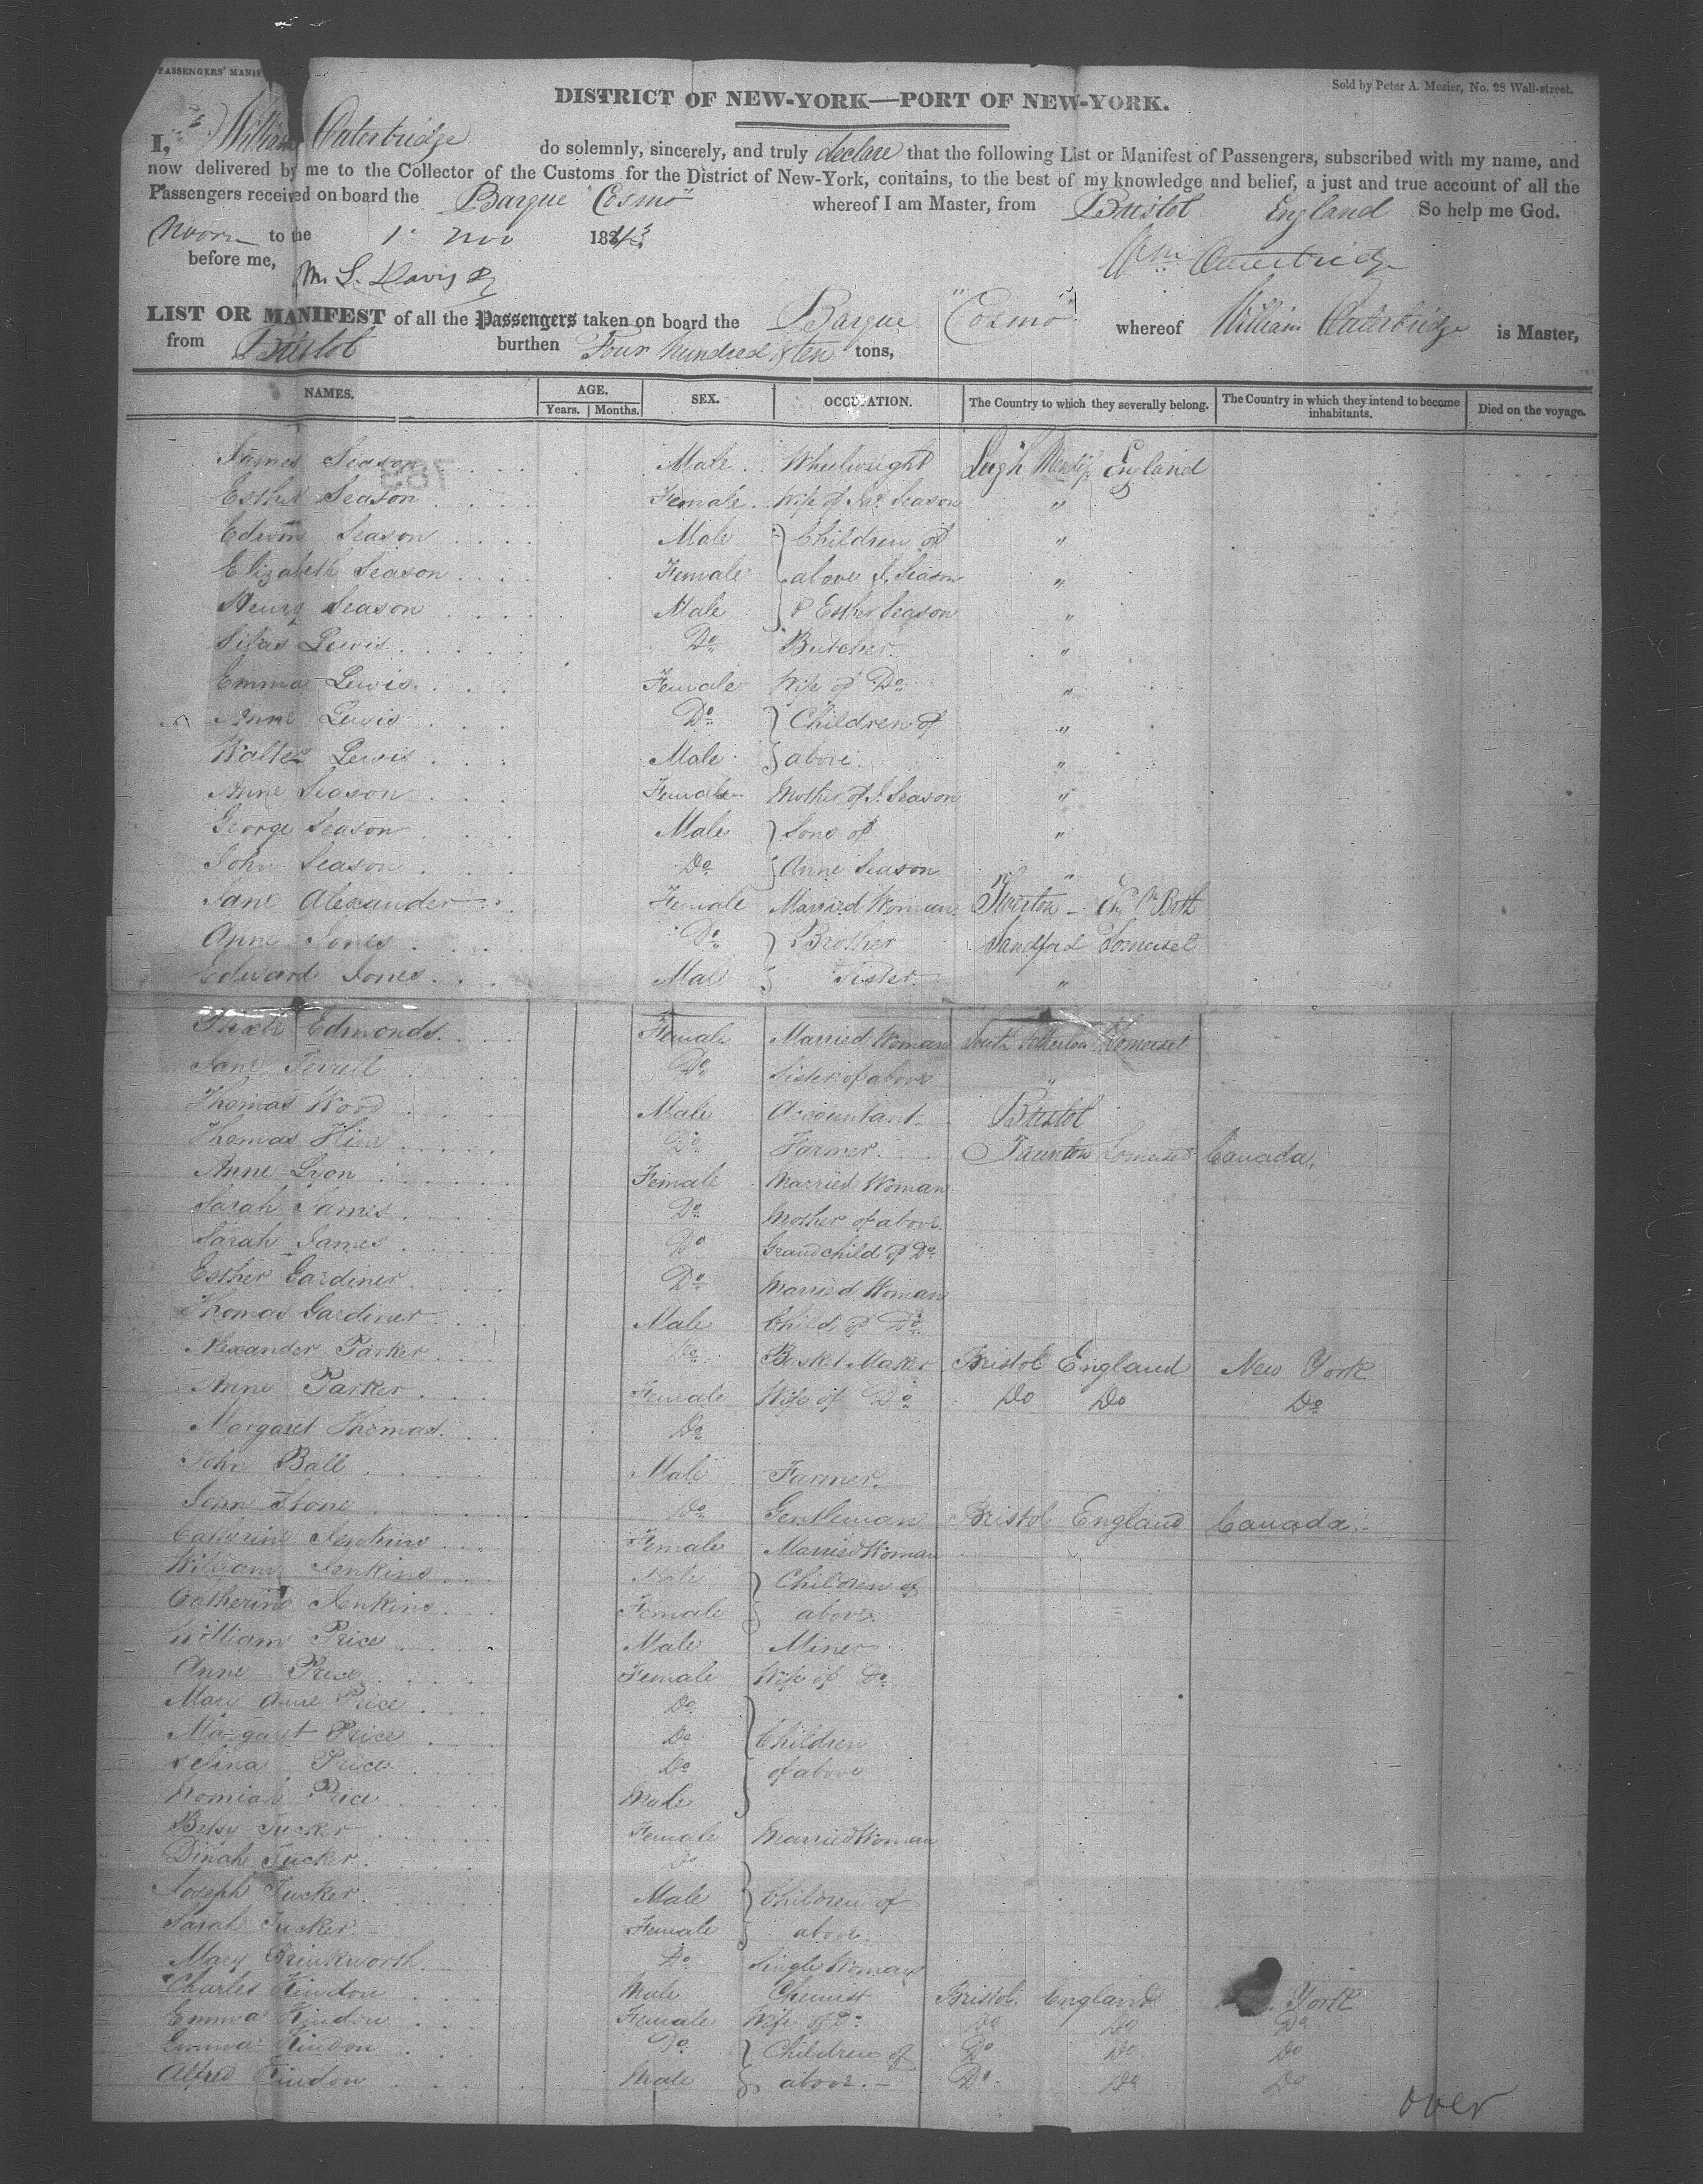 PASSENGERS' MANIF
Sold by Peter A. Mesier, No. 28 Wall-street.
DISTRICT OF NEW-YORK—PORT OF NEW-YORK.
I, William Outerbridge do solemnly, sincerely, and truly declare that the following List or Manifest of Passengers, subscribed with my name, and
now delivered by me to the Collector of the Customs for the District of New-York, contains, to the best of my knowledge and belief, a just and true account of all the
Passengers received on board the Barque "Cosmo" whereof I am Master, from Bristol England So help me God.
Sworn to the 1 Nov 1843
Wm Outerbridge
before me, M. L. Davis
LIST OR MANIFEST of all the Passengers taken on board the Barque "Cosmo" whereof William Outerbridge is Master,
from Bristol burthen Four hundred & ten tons,
NAMES. AGE. SEX. OCCUPATION. The Country to which they severally belong. The Country in which they intend to become inhabitants. Died on the voyage.
Years. Months.
James Season Male Wheelwright Leigh Mendip England
Esther Season Female Wife of Jas. Season "
Edwin Season Male Children of "
Elizabeth Season Female above J. Season "
Henry Season Male & Esther Season "
Silas Lewis Do Butcher "
Emma Lewis Female Wife of Do "
Anne Lewis Do Children of "
Walter Lewis Male above "
Anne Season Female Mother of J. Season "
George Season Male Sons of "
John Season Do Anne Season "
Jane Alexander Female Married Woman Twerton Bath
Anne Jones Do Brother Sandford Somerset
Edward Jones Male Sister "
Edmonds Female Married Woman South Petherton Somerset
Jane Terrell Do Sister of above "
Thomas Wood Male Accountant Bristol
Thomas Hine Do Farmer Taunton Somerset Canada
Anne Lyon Female Married Woman
Sarah James Do Mother of above
Sarah James Do Grandchild of Do
Esther Gardiner Do Married Woman
Thomas Gardiner Male Child of Do
Alexander Parker Do Basket Maker Bristol England New York
Anne Parker Female Wife of Do Do Do Do
Margaret Thomas Do
John Ball Male Farmer
John Stone Do Gentleman Bristol England Canada
Catherine Jenkins Female Married Woman
William Jenkins Male Children of
Catherine Jenkins Female above
William Price Male Miner
Anne Price Female Wife of Do
Mary Anne Price Do
Margaret Price Do Children
Selina Price Do of above
Price Male
Betsy Tucker Female Married Woman
Dinah Tucker Do
Joseph Tucker Male Children of
Sarah Tucker Female above
Mary Brinkworth Do Single Woman
Charles Kindon Male Chemist Bristol England York
Emma Kindon Female Wife of Do Do Do Do
Emma Kindon Do Children of Do Do Do
Alfred Kindon Male above Do Do Do
over